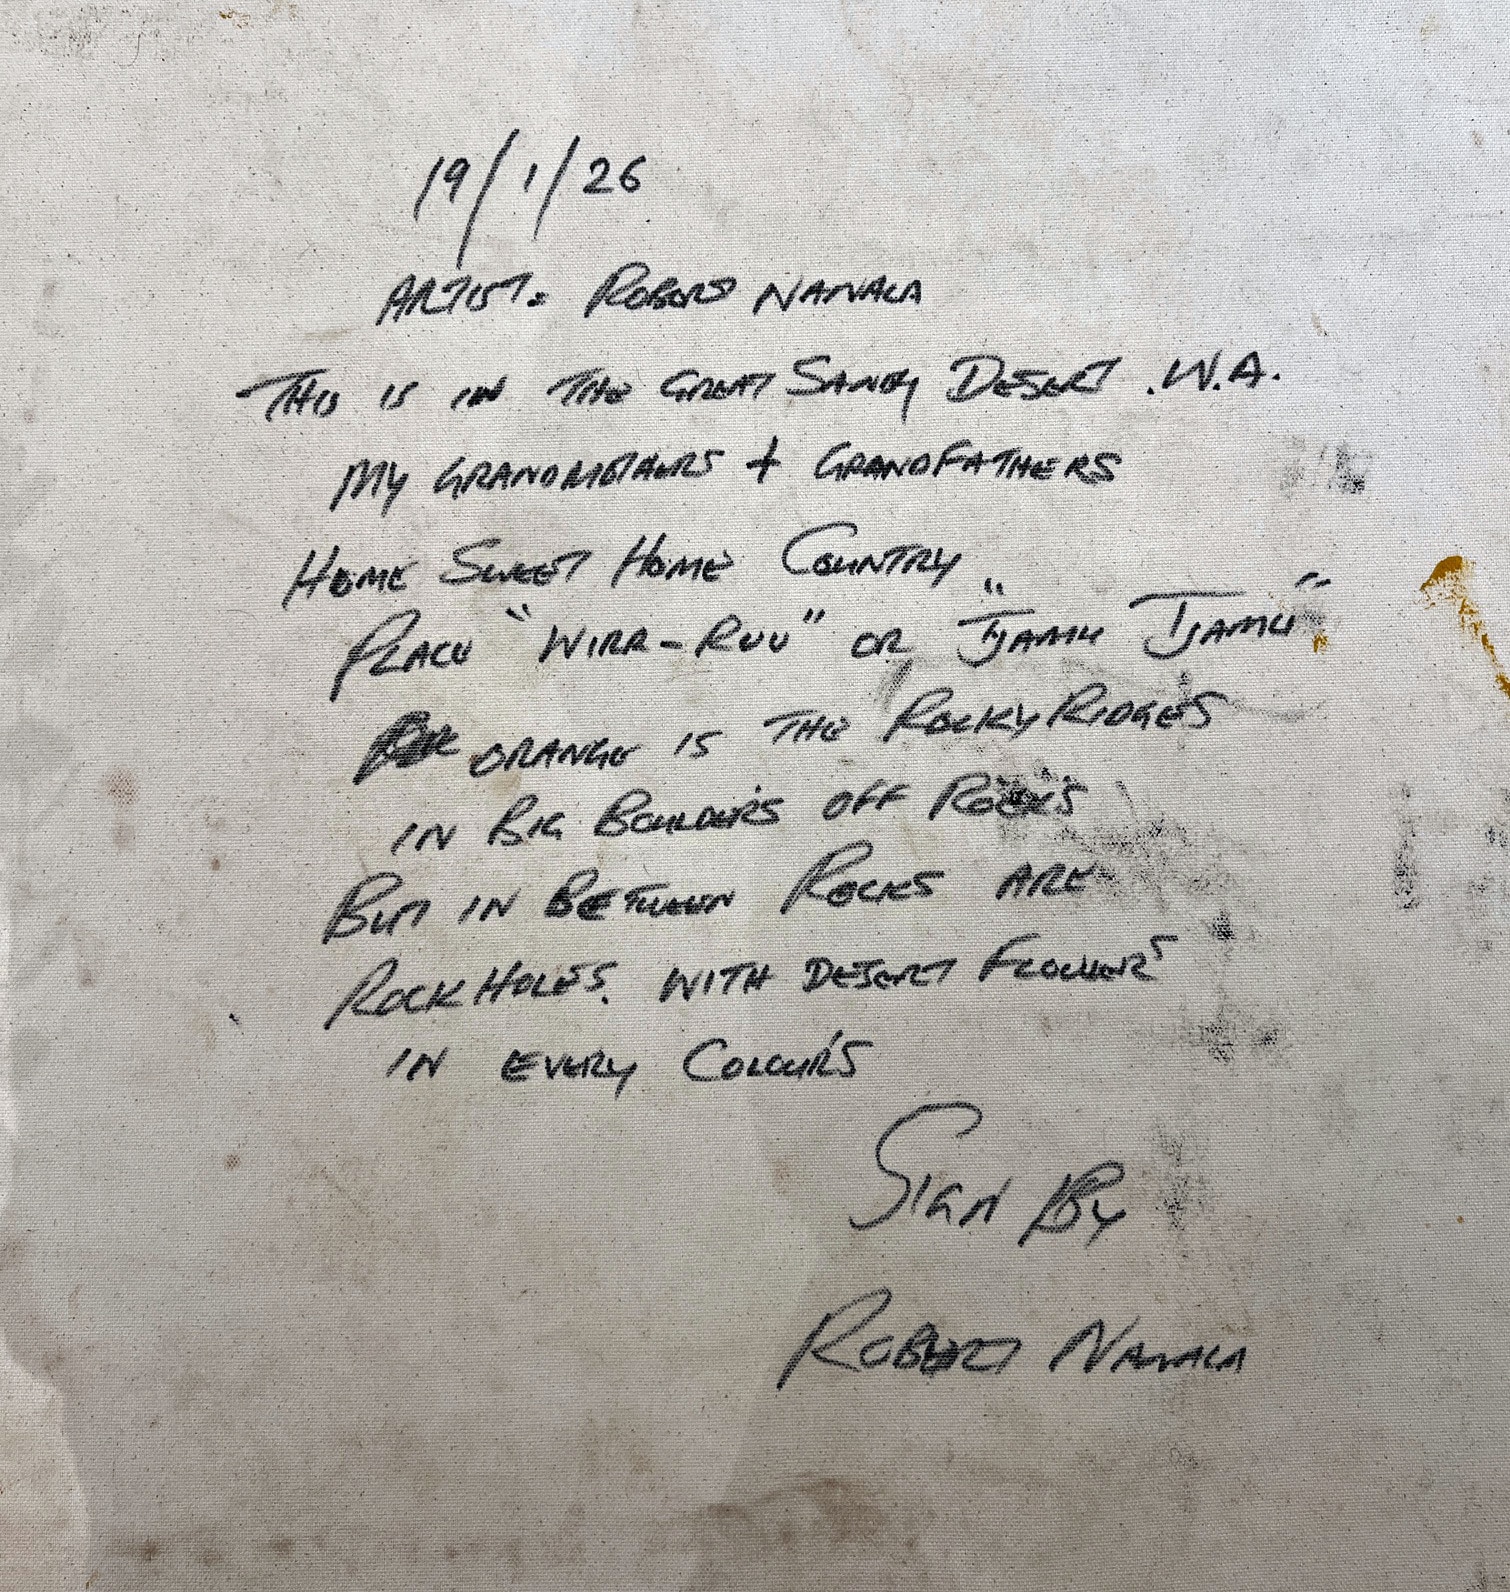 19/1/26
ARTIST. ROBERT NANALA
THIS IS IN THE GREAT SANDY DESERT. W.A.
MY GRANDMOTHERS + GRANDFATHERS
HOME SWEET HOME COUNTRY
PLACE "WIRR-RUU" OR "TJAMU TJAMU"
ORANGE IS THE ROCKY RIDGES
IN BIG BOULDER'S OFF ROCKS
BUT IN BETWEEN ROCKS ARE
ROCKHOLES. WITH DESERT FLOWERS
IN EVERY COLOUR'S
SIGN BY
ROBERT NANALA